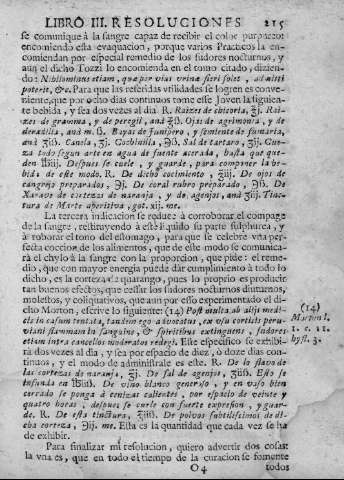 LIBRO III. RESOLUCIONES 215
se comunique à la sangre capaz de recibir el color purpureo:
encomiendo esta evaquacion, porque varios Practicos la en-
comiendan por especial remedio de los sudores nocturnos, y
aun el dicho Tozzi lo encomienda en el tomo citado, dizien-
do: Nihilominus etiam, quæ per vias urinæ fieri solet, admitti
poterit, &c. Para que las referidas utilidades se logren es conve-
niente, que por ocho dias continuos tome este Joven la siguien-
te bebida, y sea dos vezes al dia. R. Raizes de chicoria, ʒj. Raizes
de gravona, y de peregil, anà ℥ß. Ojas de agrimonia, y de
doradilla, anà m. ß. Bayas de Junipero, y semiente de fumaria,
anà ʒiß. Canela, ʒj. Cochinilla, ℈ß. Sal de tartaro, ʒij. Cue-
za todo segun arte en agua de fuente acerada, basta que que-
den ℔iij. Despues se cuele, y guarde, para componer la be-
bida de este modo. R. De dicho cocimiento, ℥iij. De ojos de
cangrejo preparados, ℈j. De coral rubro preparado, ℈ß. De
Xarave de cortezas de naranja, y de agenjos, anà ʒiij. Tinc-
tura de Marte aperitiva, got. xij. me.
La tercera indicacion se reduce à corroborar el compage
de la sangre, restituyendo à este liquido su parte sulphurea, y
à roborar el tono del estomago, para que se celebre una per-
fecta coccion de los alimentos, que de este modo se comunica-
rà el chylo à la sangre con la proporcion, que pide: el reme-
dio, que con mayor energia puede dar cumplimiento à todo lo
dicho, es la corteza quarango, pues lo proprio es producir
tan buenos efectos, que cessar los sudores nocturnos diuturnos,
molestos, y coliquativos, que aun por esso experimentado el dicho
Morton, escrive lo siguiente: (14) Post multa ab alijs medi-
cis in casum tentata, tandem ego advocatus, ex usu corticis peru-
viani flammam in sanguine, & spiritibus extinguens, sudores
etiam intra cancellos moderatos redegi. Este especifico se exhibi-
rà dos vezes al dia, y sea por espacio de diez, ò doze dias con-
tinuos, y el modo de administrarle es este. R. De lo flavo de
las cortezas de naranja, ʒj. De sal de agenjos, ʒiß. Esto se
infunda en ℔iß. De vino blanco generoso, y en vaso bien
cerrado se ponga à cenizas calientes, por espacio de veinte y
quatro horas, despues se cuele con fuerte expression, y guar-
de. R. De esta tinctura, ℥iij. De polvos subtilissimos de di-
cha corteza, ℈ij. me. Esta es la quantidad que cada vez se ha
de exhibir.
Para finalizar mi resolucion, quiero advertir dos cosas:
la una es, que en todo el tiempo de la curacion se fomente
O4 todos
(14)
Morton l.
1. c. 12.
hyst. 3.